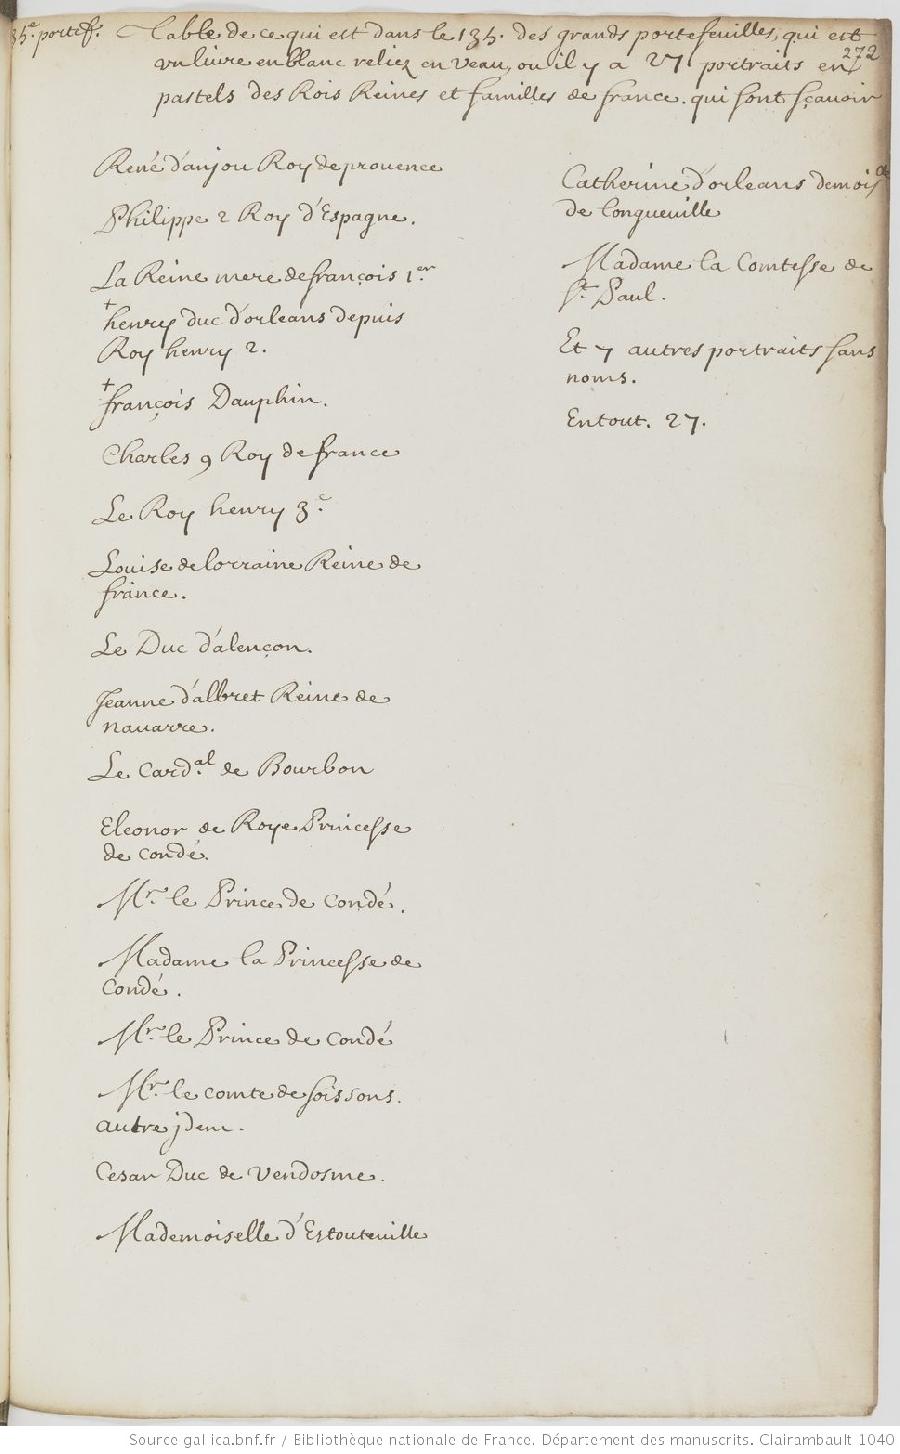 35e. portef. Table de ce qui est dans le 135. des grands portefeuilles, qui est
272
vn liure en blanc reliez en veau, ou il y a 27 portraits en
pastels des Rois Reines et familles de france. qui sont sçauoir
René d'anjou Roy de prouence
Philippe 2 Roy d'Espagne.
La Reine mere de françois 1.er
+
henry duc d'orleans depuis
Roy henry 2.
+
françois Dauphin.
Charles 9 Roy de france
Le Roy henry 3.e
Louise de lorraine Reine de
france.
Le Duc d'alençon.
Jeanne d'albret Reine de
nauarre.
Le Card.al de Bourbon
Eleonor de Roye Princesse
de condé.
Mr. le Prince de Condé.
Madame la Princesse de
Condé.
Mr. le Prince de Condé
Mr. le comte de soissons.
autre jdem.
Cesar Duc de Vendosme.
Mademoiselle d'Estouteuille
Catherine d'orleans demois.le
de longueuille
Madame la Comtesse de
St. Paul.
Et 7 autres portraits sans
noms.
En tout. 27.
Source gallica.bnf.fr / Bibliothèque nationale de France. Département des manuscrits. Clairambault 1040